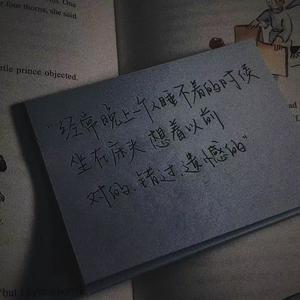 four thorns, she said
prince objected.
"经常晚上一个人睡不着的时候
坐在床头 想着以前
对的,错过,遗憾的"
"but I